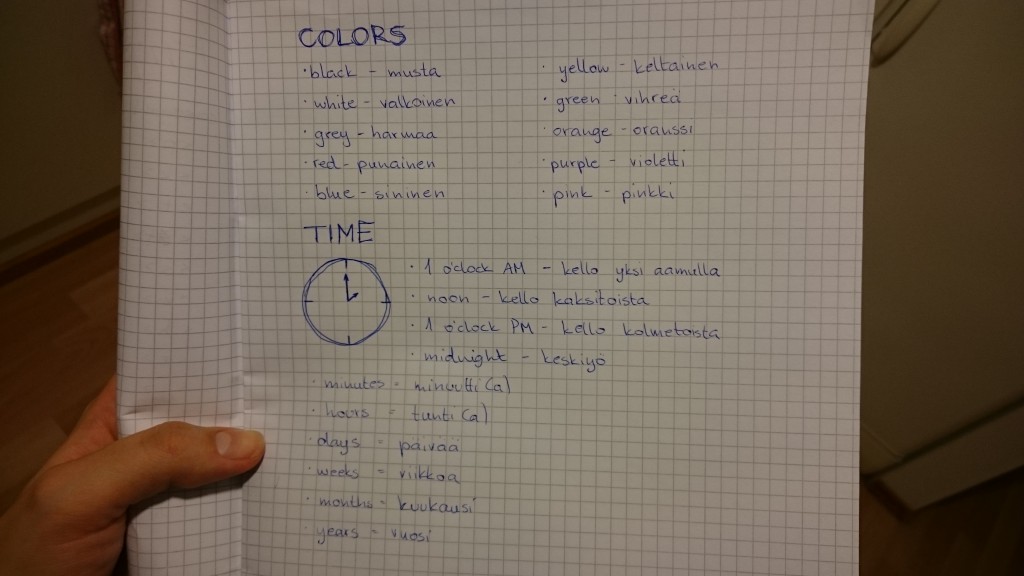 COLORS
· black - musta
· white - valkoinen
· grey - harmaa
· red - punainen
· blue - sininen
· yellow - keltainen
· green - vihreä
· orange - oranssi
· purple - violetti
· pink - pinkki
TIME
· 1 o'clock AM - kello yksi aamulla
· noon - kello kaksitoista
· 1 o'clock PM - kello kolmetoista
· midnight - keskiyö
· minutes = minuutti (a)
· hours = tunti (a)
· days = päivää
· weeks = viikkoa
· months = kuukausi
· years = vuosi